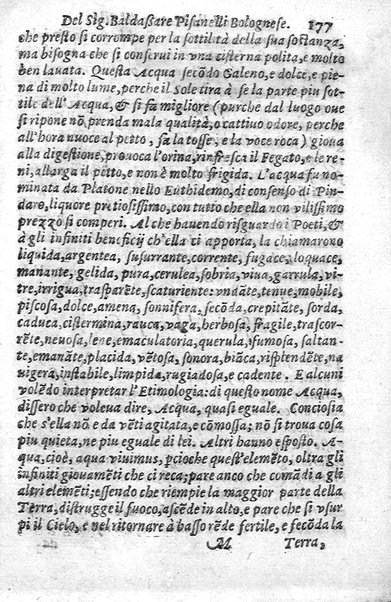 Del Sig. Baldaßare Pisanelli Bolognese. 177
che presto si corrompe per la sottilità della sua sostanza,
ma bisogna che si conserui in vna cisterna polita, e molto
ben lauata. Questa Acqua secōdo Galeno, e dolce, e pie-
na di molto lume, perche il Sole tira à se la parte piu sot-
tile dell'Acqua, & si fa migliore (purche dal luogo oue
si ripone nō prenda mala qualità, o cattiuo odore, perche
all'hora nuoce al petto, fa la tosse, e la voce roca) gioua
alla digestione, prouoca l'orina, rinfresca il Fegato, e le re-
ni, allarga il petto, e non è molto frigida. L'acqua fu no-
minata da Platone nello Euthidemo, di consenso di Pin-
daro, liquore pretiosissimo, con tutto che ella non vilissimo
prezzo si comperi. Al che hauendo risguardo i Poeti, &
à gli infiniti beneficij ch'ella ci apporta, la chiamarono
liquida, argentea, susurrante, corrente, fugace, loquace,
manante, gelida, pura, cerulea, sobria, viua, garrula, vi-
tre, irrigua, trasparēte, scaturiente: vndāte, tenue, mobile,
piscosa, dolce, amena, sonnifera, fecōda, crepitāte, sorda,
caduca, cistermina, rauca, vaga, herbosa, fragile, trascor-
rēte, neuosa, lene, emaculatoria, querula, sfumosa, saltan-
te, emanāte, placida, vētosa, sonora, biāca, risplendēte, na
uigerа, instabile, limpida, rugiadosa, e cadente. E alcuni
volēdo interpretar l'Etimologia: di questo nome Acqua,
dissero che voleua dire, Acqua, quasi eguale. Conciosia
che s'ella nō è da vēti agitata, e cōmossa; nō si troua cosa
piu quieta, ne piu eguale di lei. Altri hanno esposto. A-
qua, cioè, aqua viuimus, pcioche quest'elemēto, oltra gli
infiniti giouamēti che ci reca; pare anco che comādi a gli
altri elemēti; essendo che riempie la maggior parte della
Terra, distrugge il fuoco, ascēde in alto, e pare che si vsur
pi il Cielo, e nel ritornare à basso rēde fertile, e fecōda la
M Terra,